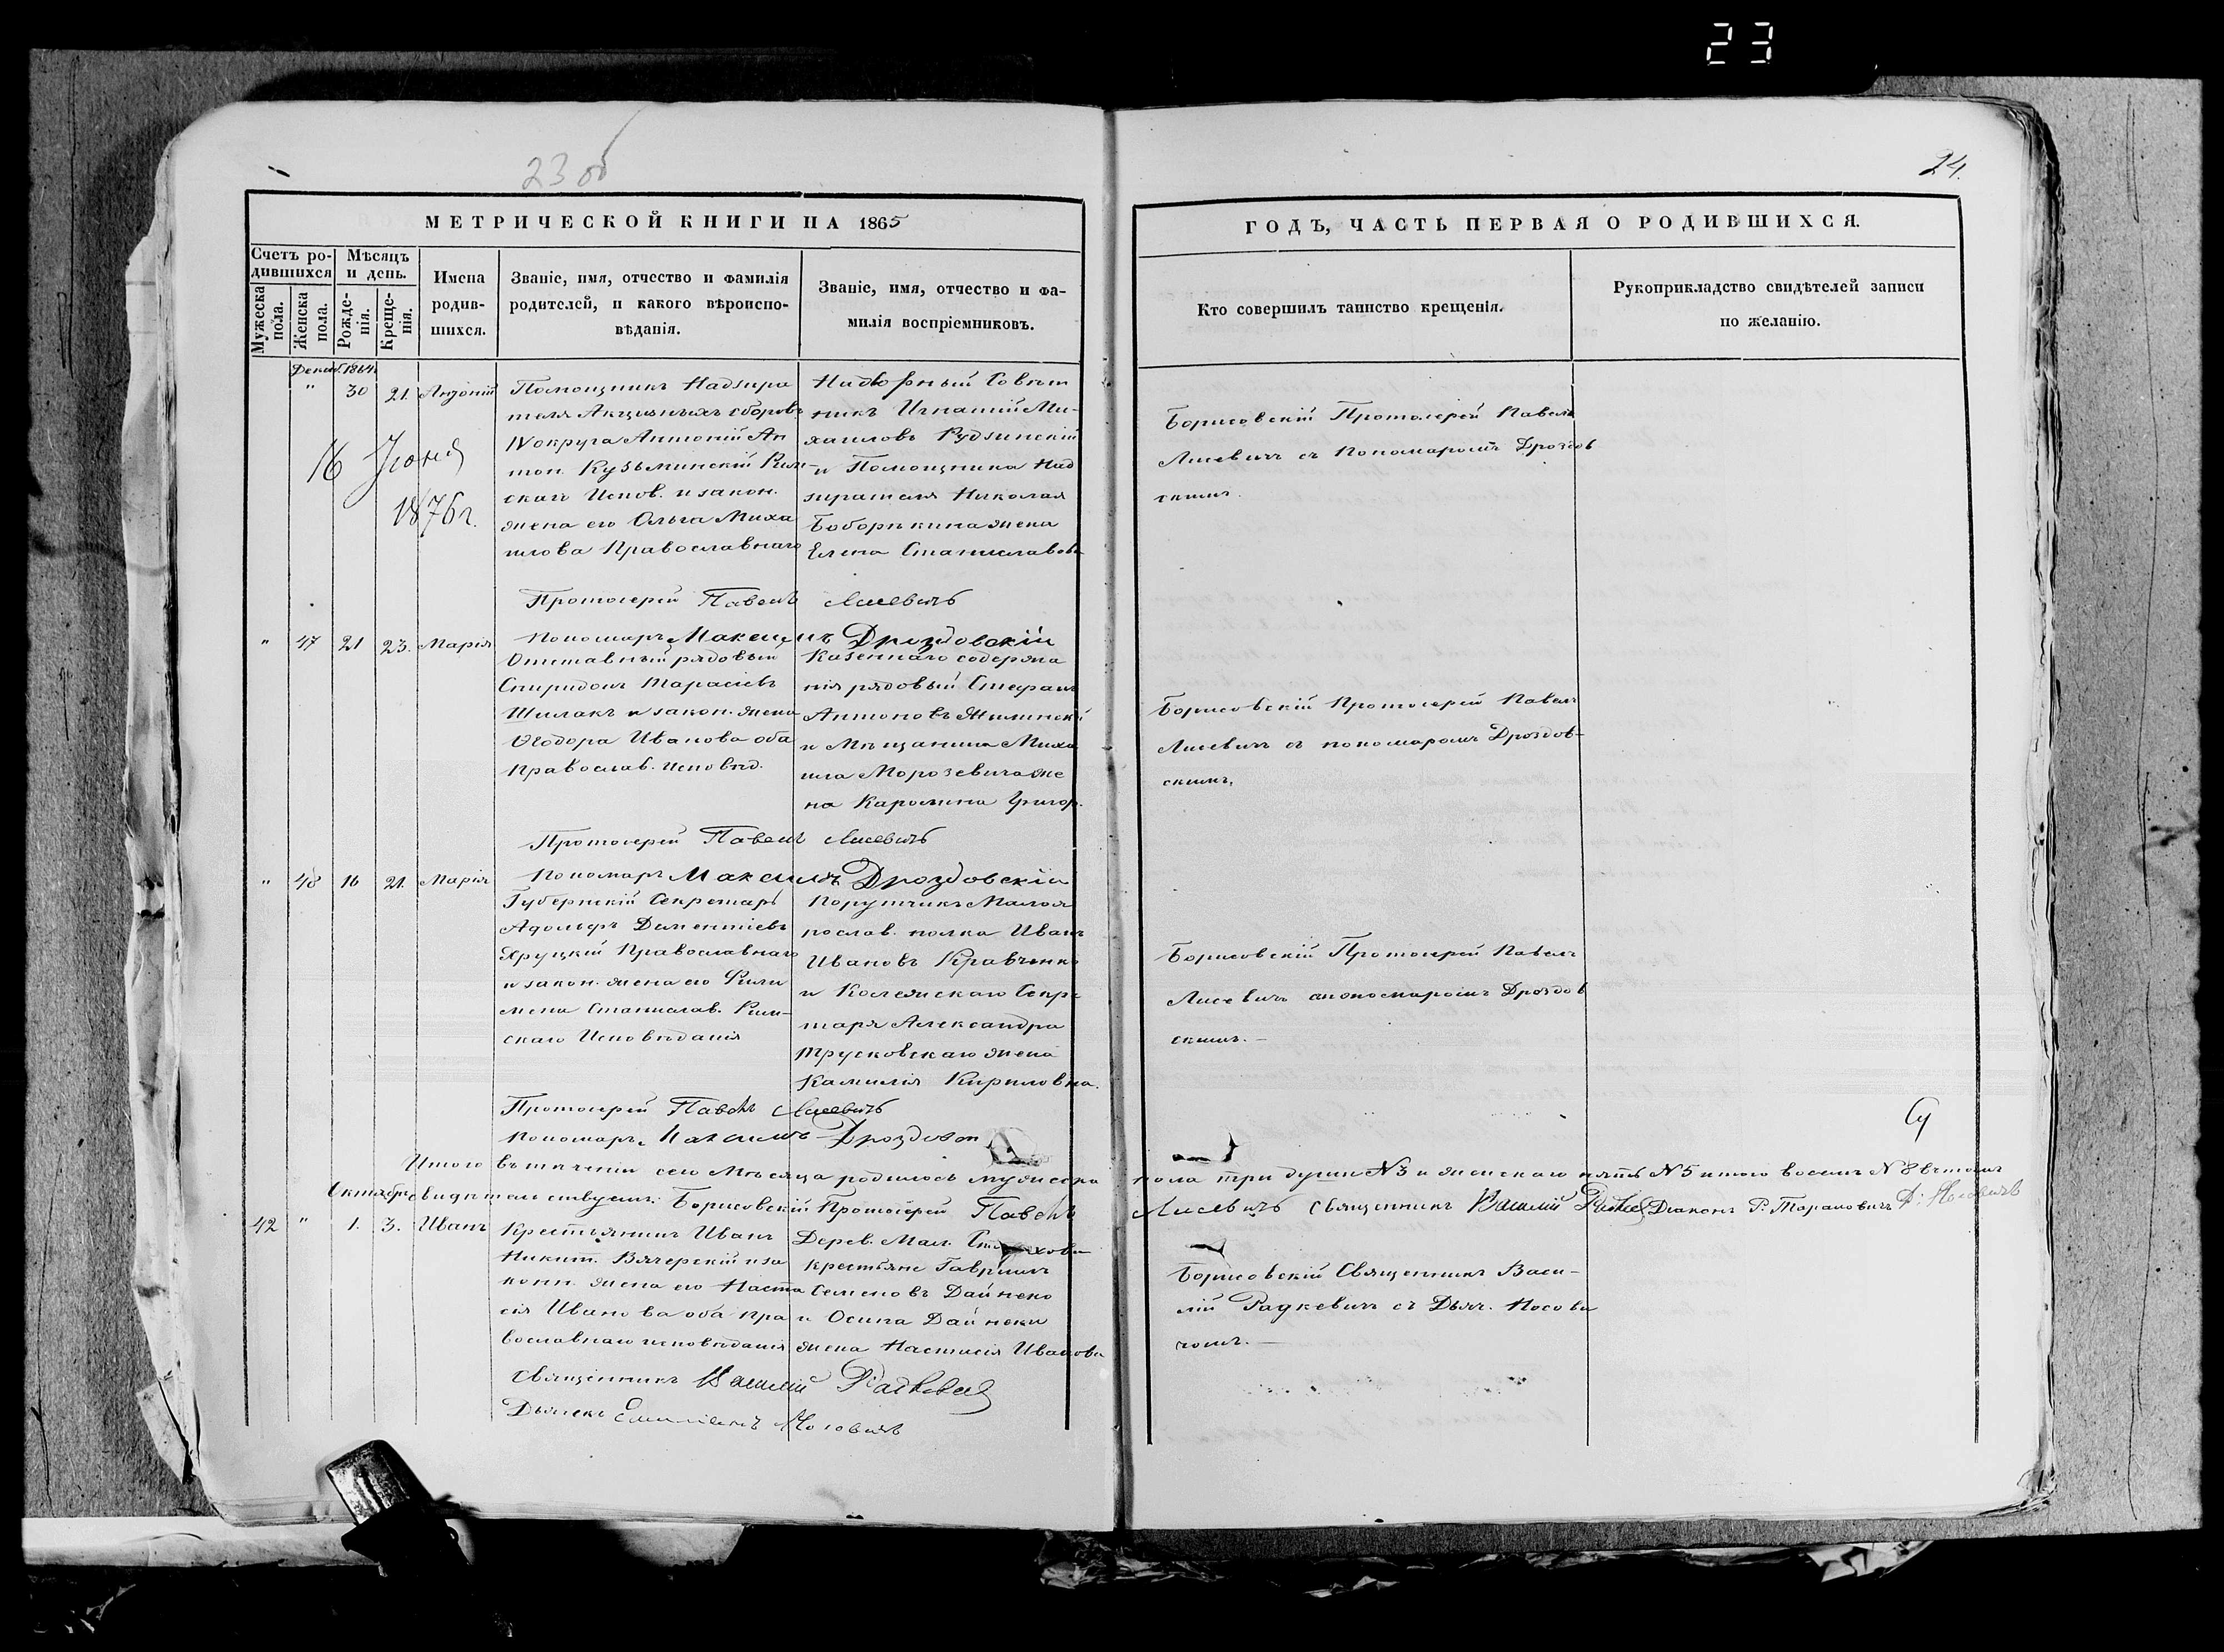 23
23 об
24.
МЕТРИЧЕСКОЙ КНИГИ НА 1865
ГОДЪ, ЧАСТЬ ПЕРВАЯ О РОДИВШИХСЯ.
Счетъ ро-
дившихся
Мужеска
пола.
Женска
пола.
Мѣсяцъ
и день.
Рожде-
нія.
Креще-
нія.
Имена
родив-
шихся.
Званіе, имя, отчество и фамилія
родителей, и какого вѣроиспо-
вѣданія.
Званіе, имя, отчество и фа-
милія воспріемниковъ.
Кто совершилъ таинство крещенія.
Рукоприкладство свидѣтелей записи
по желанію.
Декаб. 1864
" 30 21. Антоній
16 Іюня
1876 г.
Помощникъ Надзира
теля Акцизныхъ сборовъ
IV округа Антоній Ан
тон. Кузьминскій Рим-
скаго Испов. и закон.
жена его Ольга Миха
илова Православнаго
Надворный Совѣт
никъ Игнатій Ми-
хаиловъ Рудзинскій
и Помощника Над
зирателя Николая
Боборыкина жена
Елена Станиславова
Борисовскій Протоіерей Павелъ
Лисевичъ съ Пономаромъ Дроздов
скимъ.
Протоіерей Павелъ Лисевичъ
Пономаръ Максимъ Дроздовскій
" 47 21 23. Марія
Отставный рядовый
Спиридонъ Тарасіевъ
Шилакъ и закон. жена
Ѳеодора Иванова оба
Православ. исповѣд.
Казеннаго содержа
нія рядовый Стефанъ
Антоновъ Жилинскі
и Мѣщанина Миха
ила Морозевича же
на Каролина Григор.
Борисовскій Протоіерей Павелъ
Лисевичъ съ пономаромъ Дроздов-
скимъ.
Протоіерей Павелъ Лисевичъ
Пономаръ Максимъ Дроздовскій
" 48 16 21. Марія
Губернскій Секретарь
Адольфъ Дементіевъ
Хруцкій Православнаго
и закон. жена его Фили
мена Станислав. Рим-
скаго Исповѣданія
Порутчикъ Малоя
рослав. полка Иванъ
Ивановъ Кравченко
и Колежскаго Секре
таря Александра
Трусковскаго жена
Камилія Кириловна.
Борисовскій Протоіерей Павелъ
Лисевичъ с пономаромъ Дроздов
скимъ. —
Протоіерей Павелъ Лисевичъ
Пономаръ Максимъ Дроздов
Итого въ теченіи сего Мѣсяца родилось мужеска пола три души №3 и женскаго пять №5 итого восемь №8 въ томъ
свидѣтельствуемъ: Борисовскій Протоіерей Павелъ Лисевичъ Священникъ Василій Діаконъ Р. Тарановичъ Д. Носовичъ
Октябрь
42 " 1. 3. Иванъ
Крестьянинъ Иванъ
Никит. Вячерскій и за
конн. жена его Наста
сія Иванова оба пра
вославнаго исповѣданія
Дерев. Мал.
крестьяне Гавріилъ
Семеновъ Дайнеко
и Осипа Дайнеки
жена Настасія Иванова
Борисовскій Священникъ Васи-
лій Радкевичъ съ Дьяч. Носови
чомъ. —
Священникъ Василій Радкевич
Дьячекъ Емиліанъ Носовичъ